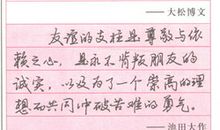 ——大松博文
友谊的支柱是尊敬与信
赖之心，是永不背叛朋友的
诚实，以及为了一个崇高的理
想而共同冲破苦难的勇气。
——池田大作